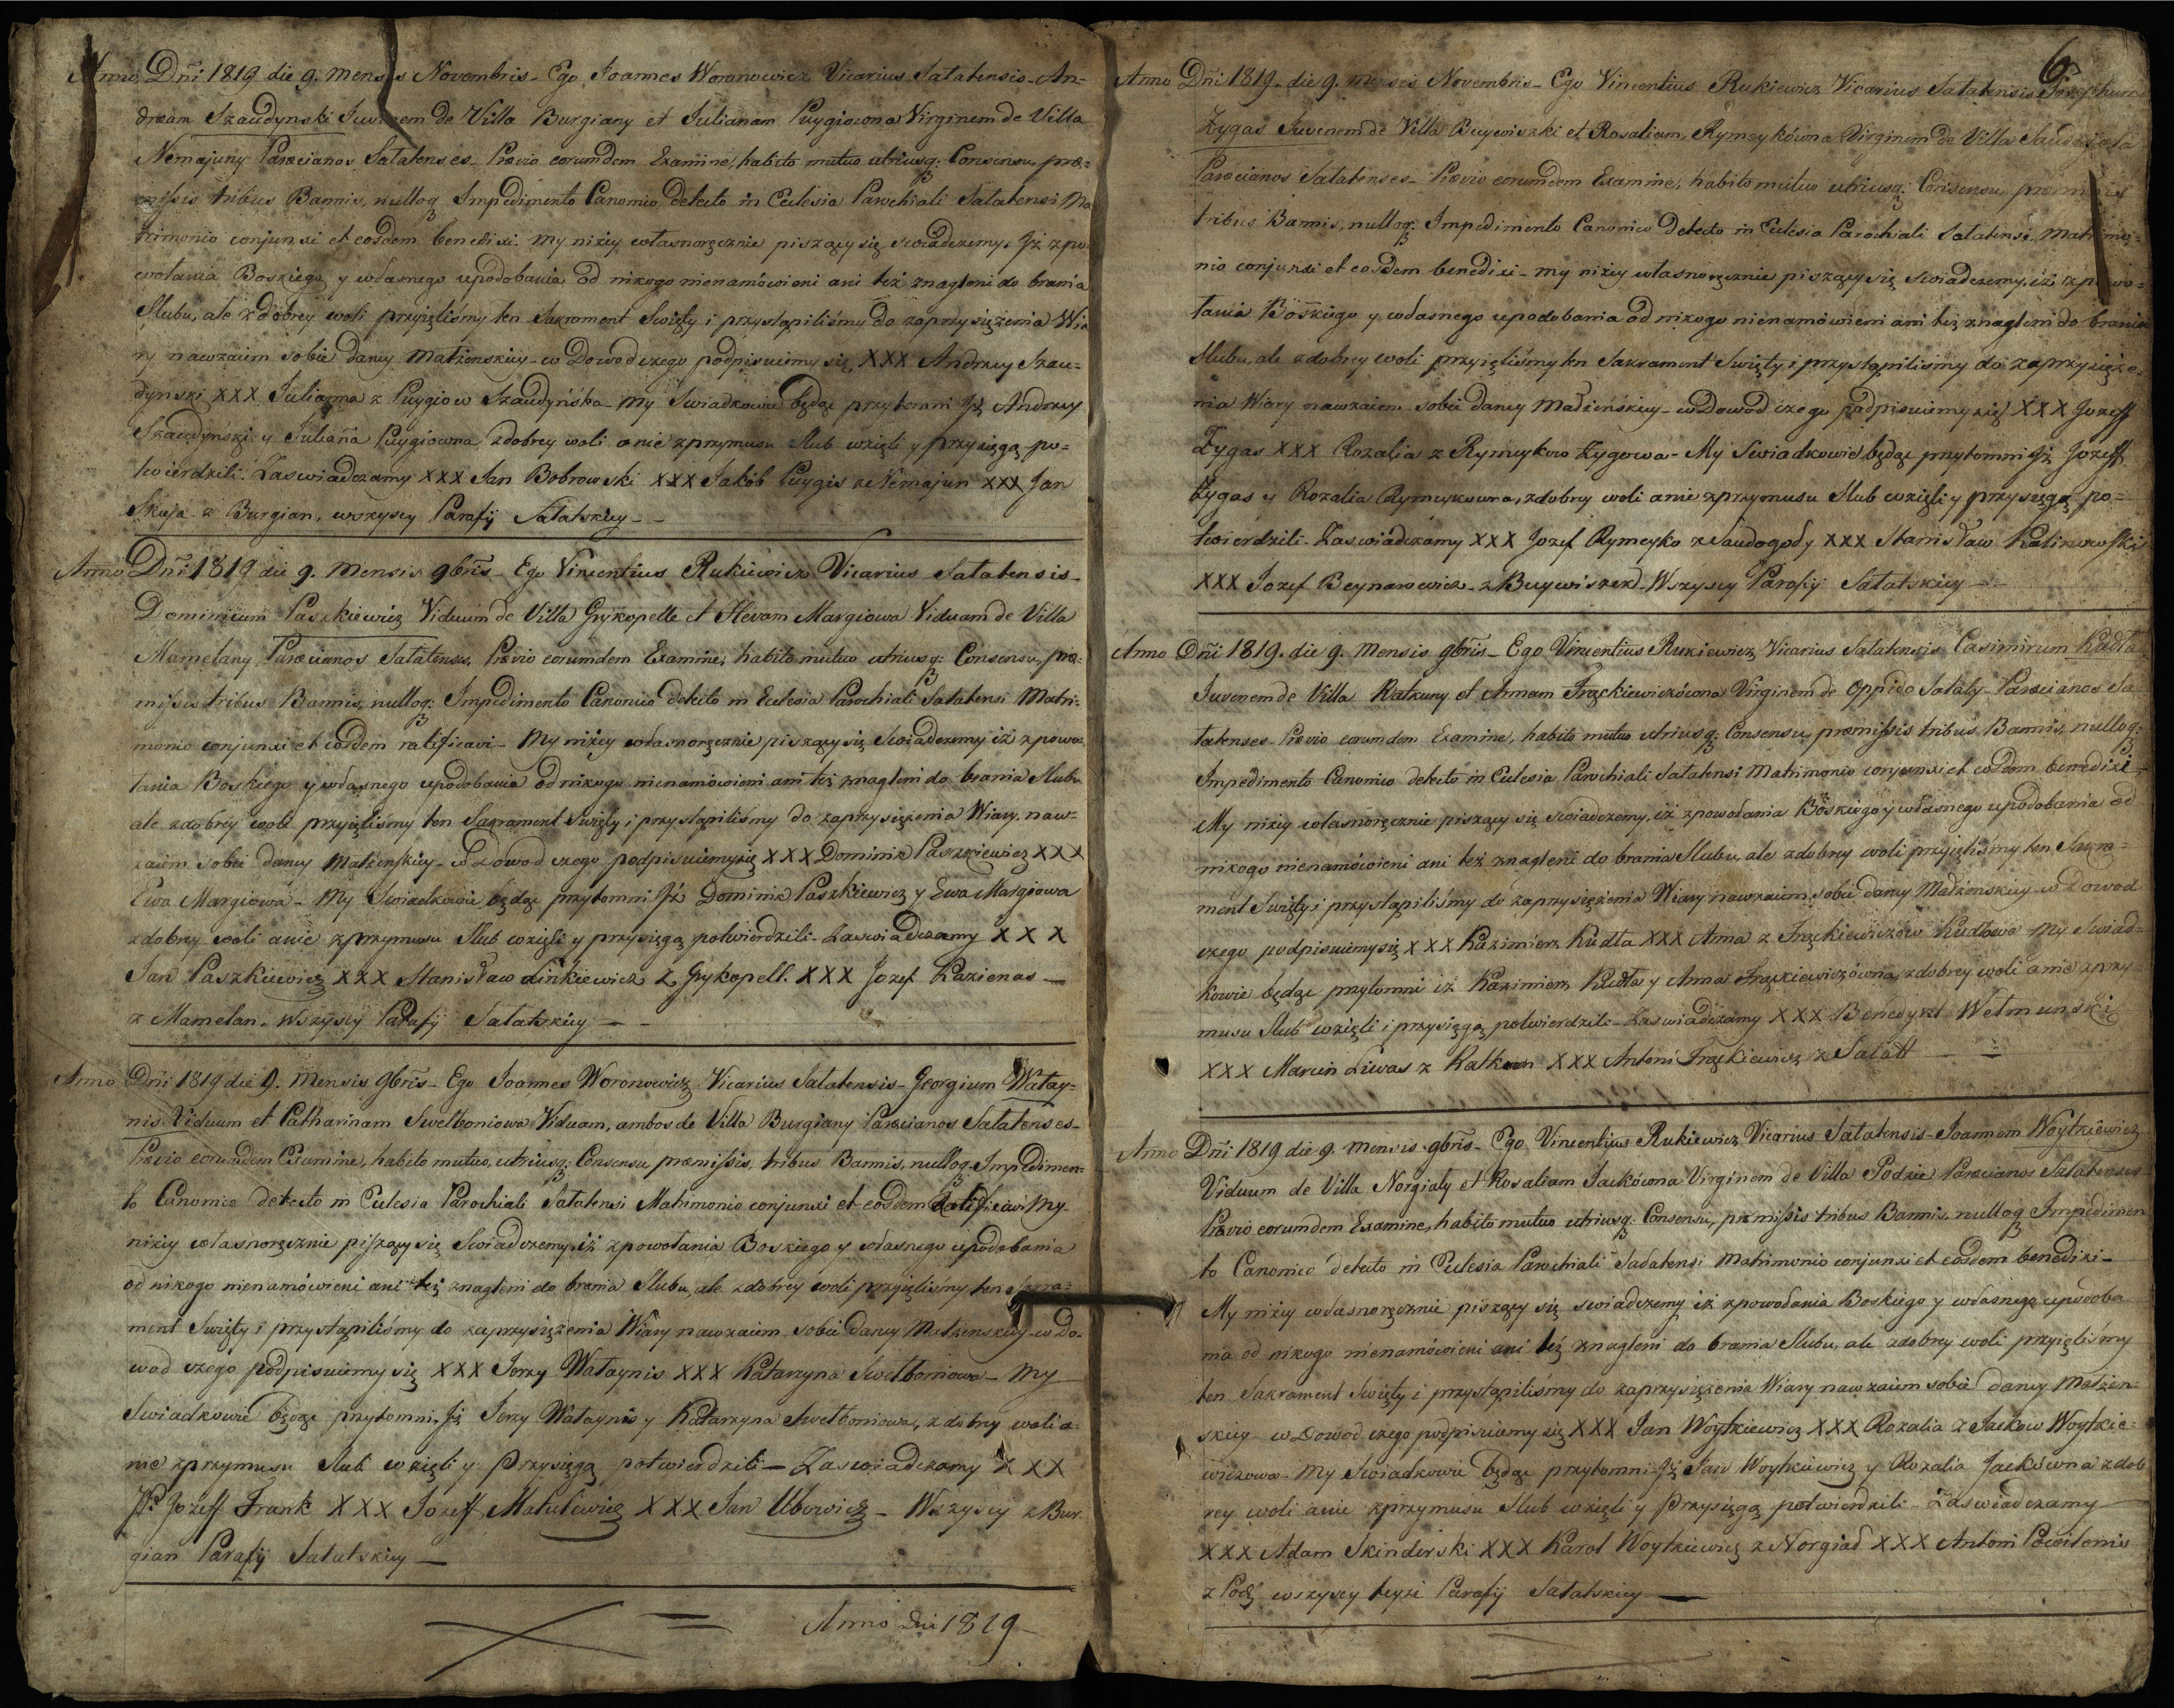 Anno Dñi 1819 die 9. Mensis Novembris - Ego Joannes Woronowicz Vicarius Satatensis - An-
dream Szaudynski Juvenem de Villa Burgiany et Julianam Puygiowna Virginem de Villa
Nemajuny Paræcianos Satatenses - Prævio eorumdem Examine, habito mutuo utriusq: Consensu, præ-
missis tribus Bannis, nulloq: Impedimento Canonico detecto in Eclesia Parochiali Satatensi Ma
trimonio conjunxi et eosdem benedixi. My niżey własnoręcznie piszący się swiadczemy. Jż z po-
wołania Boskiego y własnego upodobania od nikogo nienamówieni ani też znagleni do brania
Slubu, ale z dobrey woli przyięliśmy ten Sakrament Swięty i przystąpiliśmy do zaprzysiężenia Wia
ry nawzaiem sobie daney Małżenskiey - w Dowod czego podpisuiemy się XXX Andrzey Szau-
dynski XXX Julianna z Puygiow Szaudyńska - My Swiadkowie będąc przytomni Jż Andrzey
Szaudynski y Julianna Puygiowna z dobrey woli a nie z przymusu Slub wzięli y przysięgą po-
twierdzili. Zaswiadczamy XXX Jan Bobrowski XXX Jakób Puygis ze Nemajun XXX Jan
Skuja z Burgian, wszyscy Parafij Satatskiey - -
Anno Dñi 1819 die 9. Mensis 9bris - Ego Vincentius Rukiewicz Vicarius Satatensis -
Dominicum Paszkiewicz Viduum de Villa Grykopelle et Hevam Margiowa Viduam de Villa
Mamelany Paræcianos Satatenses, Prævio eorumdem Examine, habito mutuo utriusq: Consensu, præ-
missis tribus Bannis, nulloq: Impedimento Canonico detecto in Eclesia Parochiali Satatensi Matri-
monio conjunxi et eosdem ratificavi - My niżey własnoręcznie piszący się Swiadczemy iż z powo-
łania Boskiego y własnego upodobania od nikogo nienamówieni ani też znagleni do brania Slubu
ale z dobrey woli przyięliśmy ten Sakrament Swięty i przystąpiliśmy do zaprzysiężenia Wiary naw-
zaiem sobie daney Małżenskiey - w Dowod czego podpisuiemy się XXX Dominik Paszkiewicz XXX
Ewa Margiowa - My Swiadkowie będąc przytomni Jż Dominik Paszkiewicz y Ewa Margiowa
z dobrey woli a nie z przymusu Slub wzięli y przysięgą potwierdzili - Zaswiadczamy X X X
Jan Paszkiewicz XXX Stanisław Linkiewicz z Grykopell. XXX Jozef Kazienas -
z Mamelan. Wszyscy Parafij Satatskiey - -
Anno Dñi 1819 die 9. Mensis 9bris - Ego Joannes Woronowicz Vicarius Satatensis - Georgium Watay-
nis Viduum et Catharinam Swelboniowa Viduam, ambos de Villa Burgiany Paræcianos Satatenses -
Prævio eorumdem Examine, habito mutuo, utriusq: Consensu præmissis, tribus Bannis, nulloq. Impedimen-
to Canonico detecto in Eclesia Parochiali Satatensi Matrimonio conjunxi et eosdem Ratificavi My
niżey własnoręcznie piszący się Swiadczemy, iż z powołania Boskiego y własnego upodobania
od nikogo nienamówieni ani też znagleni do brania Slubu, ale z dobrey woli przyięliśmy ten Sakra-
ment Swięty i przystąpiliśmy do zaprzysiężenia Wiary nawzaiem sobie daney Małżenskiey - w Do-
wod czego podpisuiemy się XXX Jerzy Wataynis XXX Katarzyna Swelboniowa - My
Swiadkowie będąc przytomni, Jż Jerzy Wataynis y Katarzyna Swelboniowa, z dobrey woli a-
nie z przymusu Slub wzięli y Przysięgą potwierdzili - Zaswiadczamy X XX
Jozeff Frank XXX Jozeff Matulewicz XXX Jan Ubowicz - Wszyscy z Bur
gian Parafij Satatskiey -
Anno Dni 1819 -
6
Anno Dñi 1819. die 9. Mensis Novembris - Ego Vincentius Rukiewicz Vicarius Satatensis Josephum
Zygas Juvenem de Villa Buywiszki et Rosaliam Rymeykówna Virginem de Villa Saudogoda
Paræcianos Satatenses - Prævio eorumdem Examine, habito mutuo utriusq: Consensu præmissis
tribus Bannis, nulloq: Impedimento Canonico detecto in Eclesia Parochiali Satatensi Matrimo-
nio conjunxi et eosdem benedixi - my niżey własnoręcznie piszący się Swiadczemy, iż z powo-
łania Boskiego y własnego upodobania od nikogo nienamówieni ani też znagleni do brania
Slubu, ale z dobrey woli przyięliśmy ten Sakrament Swięty i przystąpiliśmy do zaprzysięże-
nia Wiary nawzaiem sobie daney Małżeńskiey - w Dowod czego podpisuiemy się XXX Jozeff
Zygas XXX Rozalia z Rymeykow Zygowa - My Swiadkowie będąc przytomni Jż Jozeff
Zygas y Rozalia Rymeykowna, z dobrey woli a nie z przymusu Slub wzięli y przysięgą po-
twierdzili - Zaswiadczamy XXX Jozef Rymeyko z Saudogody XXX Stanisław Kalinowski
XXX Jozef Beynarowicz - z Buywiszek - Wszyscy Parafij Satatskiey - -
Anno Dñi 1819. die 9. Mensis 9bris - Ego Vincentius Rukiewicz Vicarius Satatensis Casimirum Kudła
Juvenem de Villa Ratkuny et Annam Frąckiewiczówna Virginem de Oppido Sataty - Paræcianos Sa-
tatenses - Prævio eorumdem Examine, habito mutuo utriusq: Consensu præmissis tribus Bannis, nulloq:
Impedimento Canonico detecto in Eclesia Parochiali Satatensi Matrimonio conjunxi et eosdem benedixi -
My niżey własnoręcznie piszący się swiadczemy, iż z powołania Boskiego y własnego upodobania od
nikogo nienamówieni ani też znagleni do brania Slubu, ale z dobrey woli przyięliśmy ten Sakra-
ment Swięty i przystąpiliśmy do zaprzysiężenia Wiary nawzaiem sobie daney Małżenskiey - w Dowod
czego podpisuiemy się XXX Kazimierz Kudła XXX Anna z Frąckiewiczów Kudłowa My Swiad-
kowie będąc przytomni iż Kazimierz Kudła y Anna Frąckiewiczówna, z dobrey woli a nie z przy-
musu Slub wzięli i przysięgą potwierdzili - Zaswiadczamy XXX Benedykt Wetmunski
XXX Marcin Liwas z Ratkun XXX Antoni Frąckiewicz z Satatt - -
Anno Dñi 1819 die 9. Mensis 9bris - Ego Vincentius Rukiewicz Vicarius Satatensis - Joannem Woytkiewicz
Viduum de Villa Norgiaty et Rosaliam Jackówna Virginem de Villa Podzie Paræcianos Satatenses -
Prævio eorumdem Examine, habito mutuo utriusq: Consensu, præmissis tribus Bannis, nulloq Impedimen
to Canonico detecto in Eclesia Parochiali Satatensi Matrimonio conjunxi et eosdem benedixi -
My niżey własnoręcznie piszący się swiadczemy iż z powołania Boskiego y własnego upodoba
nia od nikogo nienamówieni ani też znagleni do brania Slubu, ale z dobrey woli przyięliśmy
ten Sakrament Swięty i przystąpiliśmy do zaprzysiężenia Wiary nawzaiem sobie daney Małżen-
skiey - w Dowod czego podpisuiemy się XXX Jan Woytkiewicz XXX Rozalia z Jackow Woytkie-
wiczowa. My Swiadkowie będąc przytomni Jż Jan Woytkiewicz y Rozalia Jackówna z dob
rey woli a nie z przymusu Slub wzięli y Przysięgą potwierdzili Zaswiadczamy
XXX Adam Skinderski XXX Karol Woytkiewicz z Norgiad XXX Antoni Powitonis
z Podź wszyscy teyże Parafij Satatskiey -